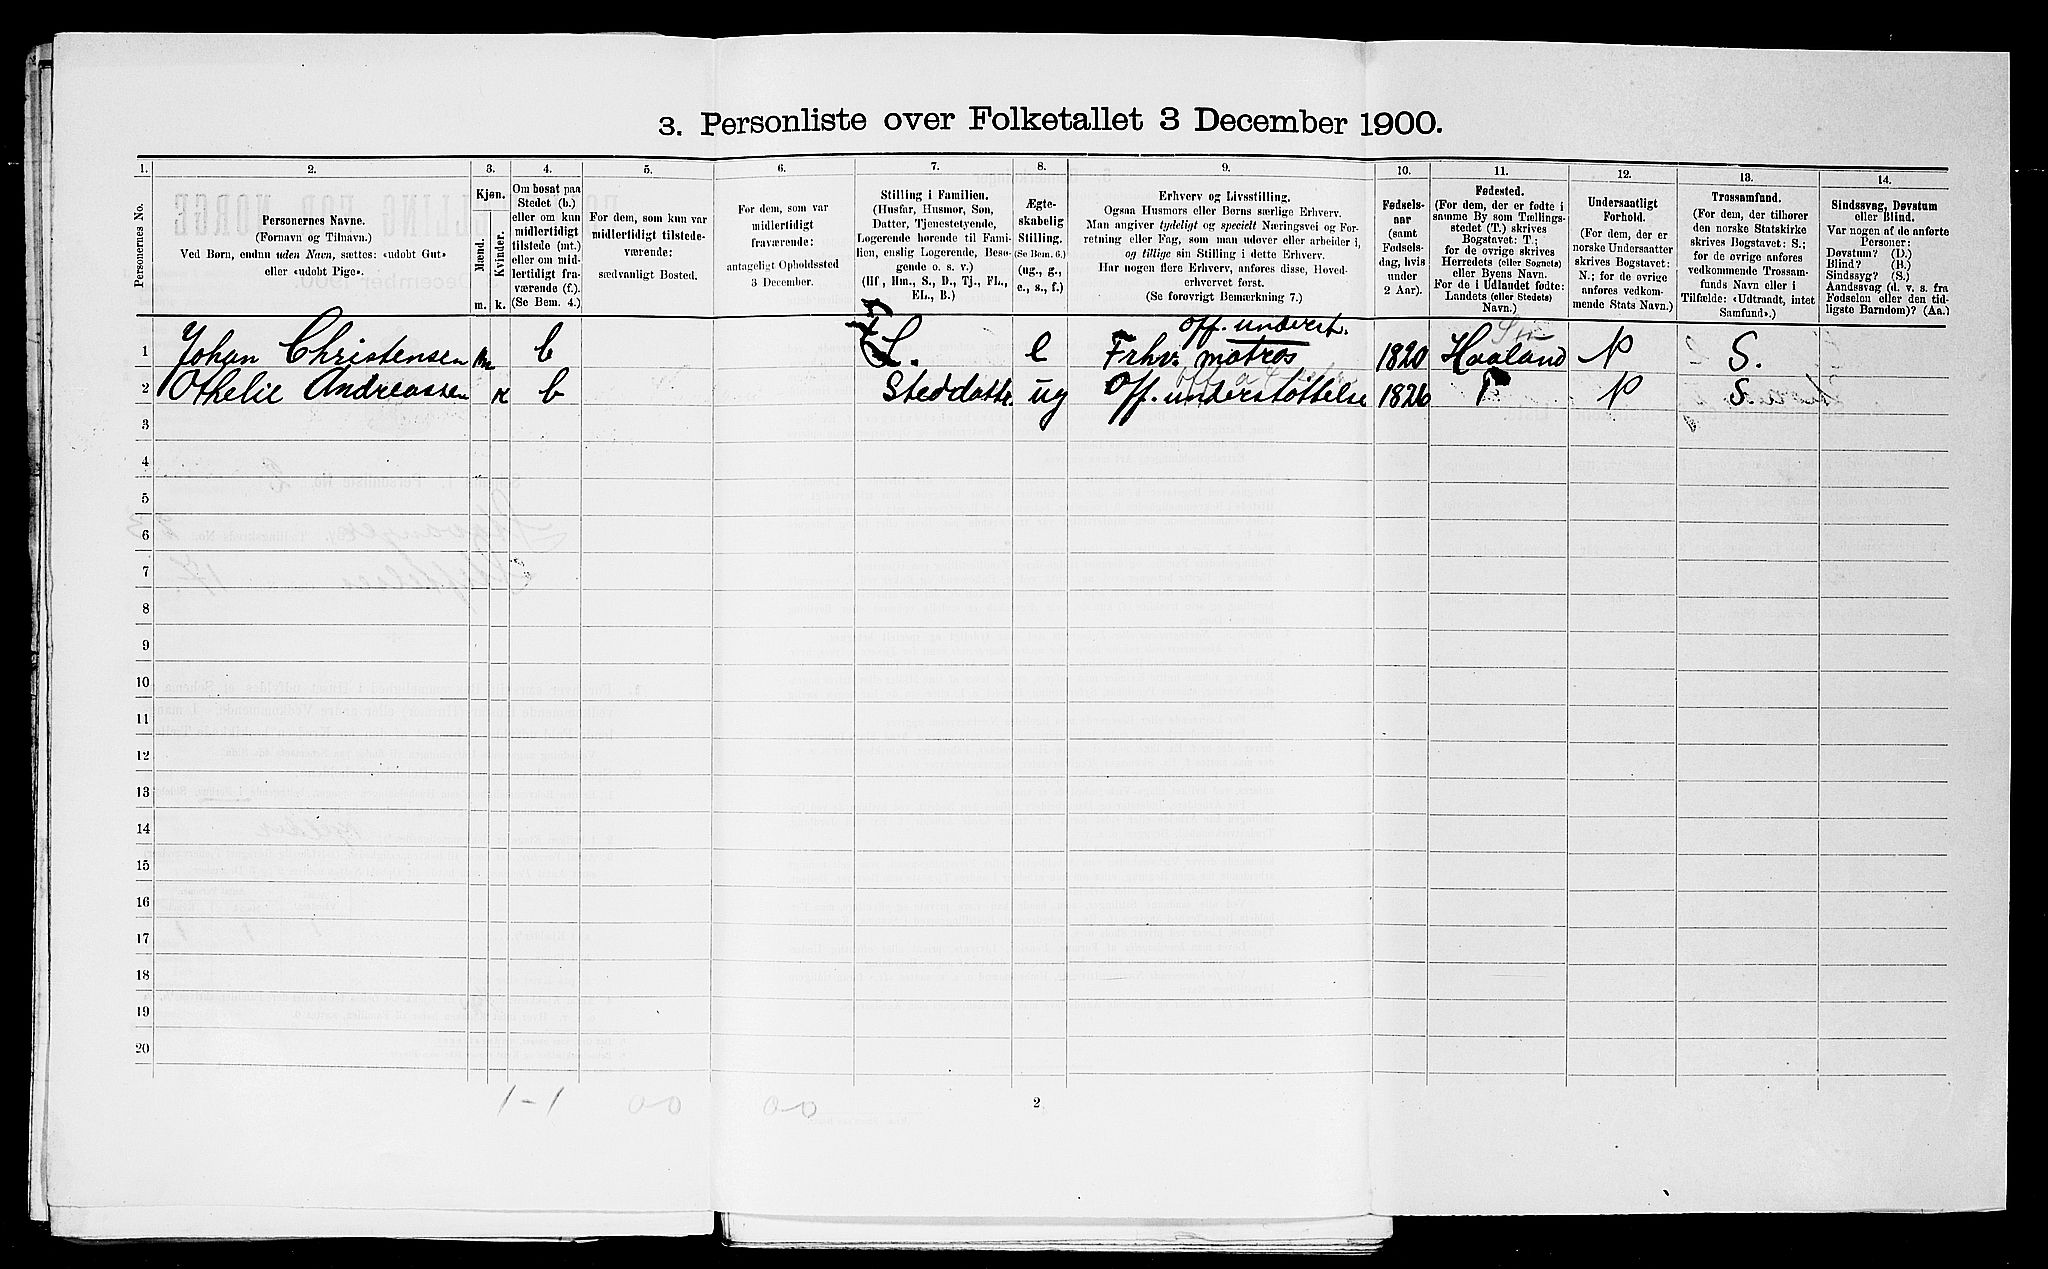 3. Personliste over Folketallet 3 December 1900.
1. 2. 3. 4. 5. 6. 7. 8. 9. 10. 11. 12. 13. 14.
Personernes No.
Personernes Navne.
(Fornavn og Tilnavn.)
Ved Børn, endnu uden Navn, sættes: «udøbt Gut»
eller «udøbt Pige».
Kjøn.
Mænd.
Kvinder.
m. k.
Om bosat paa
Stedet (b.)
eller om kun
midlertidigt
tilstede (mt.)
eller om mid-
lertidigt fra-
værende (f.).
(Se Bem. 4.)
For dem, som kun var
midlertidigt tilstede-
værende:
sædvanligt Bosted.
For dem, som var
midlertidigt
fraværende:
antageligt Opholdssted
3 December.
Stilling i Familien.
(Husfar, Husmor, Søn,
Datter, Tjenestetyende,
Logerende hørende til Fami-
lien, enslig Logerende, Besø-
gende o. s. v.)
(Hf, Hm., S., D., Tj., FL.,
EL., B.)
Ægte-
skabelig
Stilling.
(Se Bem. 6.)
(ug., g.,
e., s., f.)
Erhverv og Livsstilling.
Ogsaa Husmors eller Børns særlige Erhverv.
Man angiver tydeligt og specielt Næringsvei og For-
retning eller Fag, som man udøver eller arbeider i,
og tillige sin Stilling i dette Erhverv.
Har nogen flere Erhverv, anføres disse, Hoved-
erhvervet først.
(Se forøvrigt Bemærkning 7.)
Fødsels-
aar
(samt
Fødsels-
dag, hvis
under
2 Aar).
Fødested.
(For dem, der er fødte i
samme By som Tællings-
stedet (T.) skrives
Bogstavet: T.;
for de øvrige skrives
Herredets (eller Sognets)
eller Byens Navn.
For de i Udlandet fødte:
Landets (eller Stedets)
Navn.)
Undersaatligt
Forhold.
(For dem, der er
norske Undersaatter
skrives Bogstavet:
N.; for de øvrige
anføres vedkom-
mende Stats Navn.)
Trossamfund.
(For dem, der tilhører
den norske Statskirke
skrives Bogstavet: S.;
for de øvrige anføres
vedkommende Trossam-
funds Navn eller i
Tilfælde: «Udtraadt, intet
Samfund».)
Sindssvag, Døvstum
eller Blind.
Var nogen af de anførte
Personer:
Døvstum? (D.)
Blind? (B.)
Sindssyg? (S.)
Aandssvag (d. v. s. fra
Fødselen eller den tid-
ligste Barndom)? (Aa.)
off. underst.
1 Johan Christensen m b L. e Frhv. matros 1820 Haaland N S.
2 Othelie Andreassen k b Steddattr. ug Off. understøttelse 1826 T N S.
3
4
5
6
7
8
9
10
11
12
13
14
15
16
17
18
19
20
1-1 0-0 0-0
2